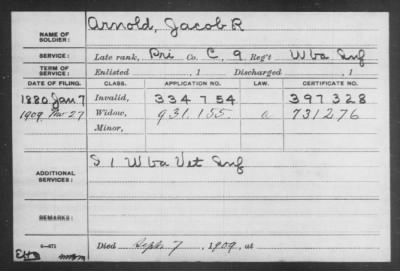 NAME OF SOLDIER: Arnold, Jacob R
SERVICE: Late rank, Pri Co. C, 9 Reg't W Va Inf
TERM OF SERVICE: Enlisted , 1 Discharged , 1
DATE OF FILING. CLASS. APPLICATION NO. LAW. CERTIFICATE NO.
1880 Jan 7 Invalid, 334754 397328
1909 Nov 27 Widow, 931.155 a 731276
Minor,
ADDITIONAL SERVICES: S 1 W Va Vet Inf
REMARKS:
Died Sept. 7, 1909, at